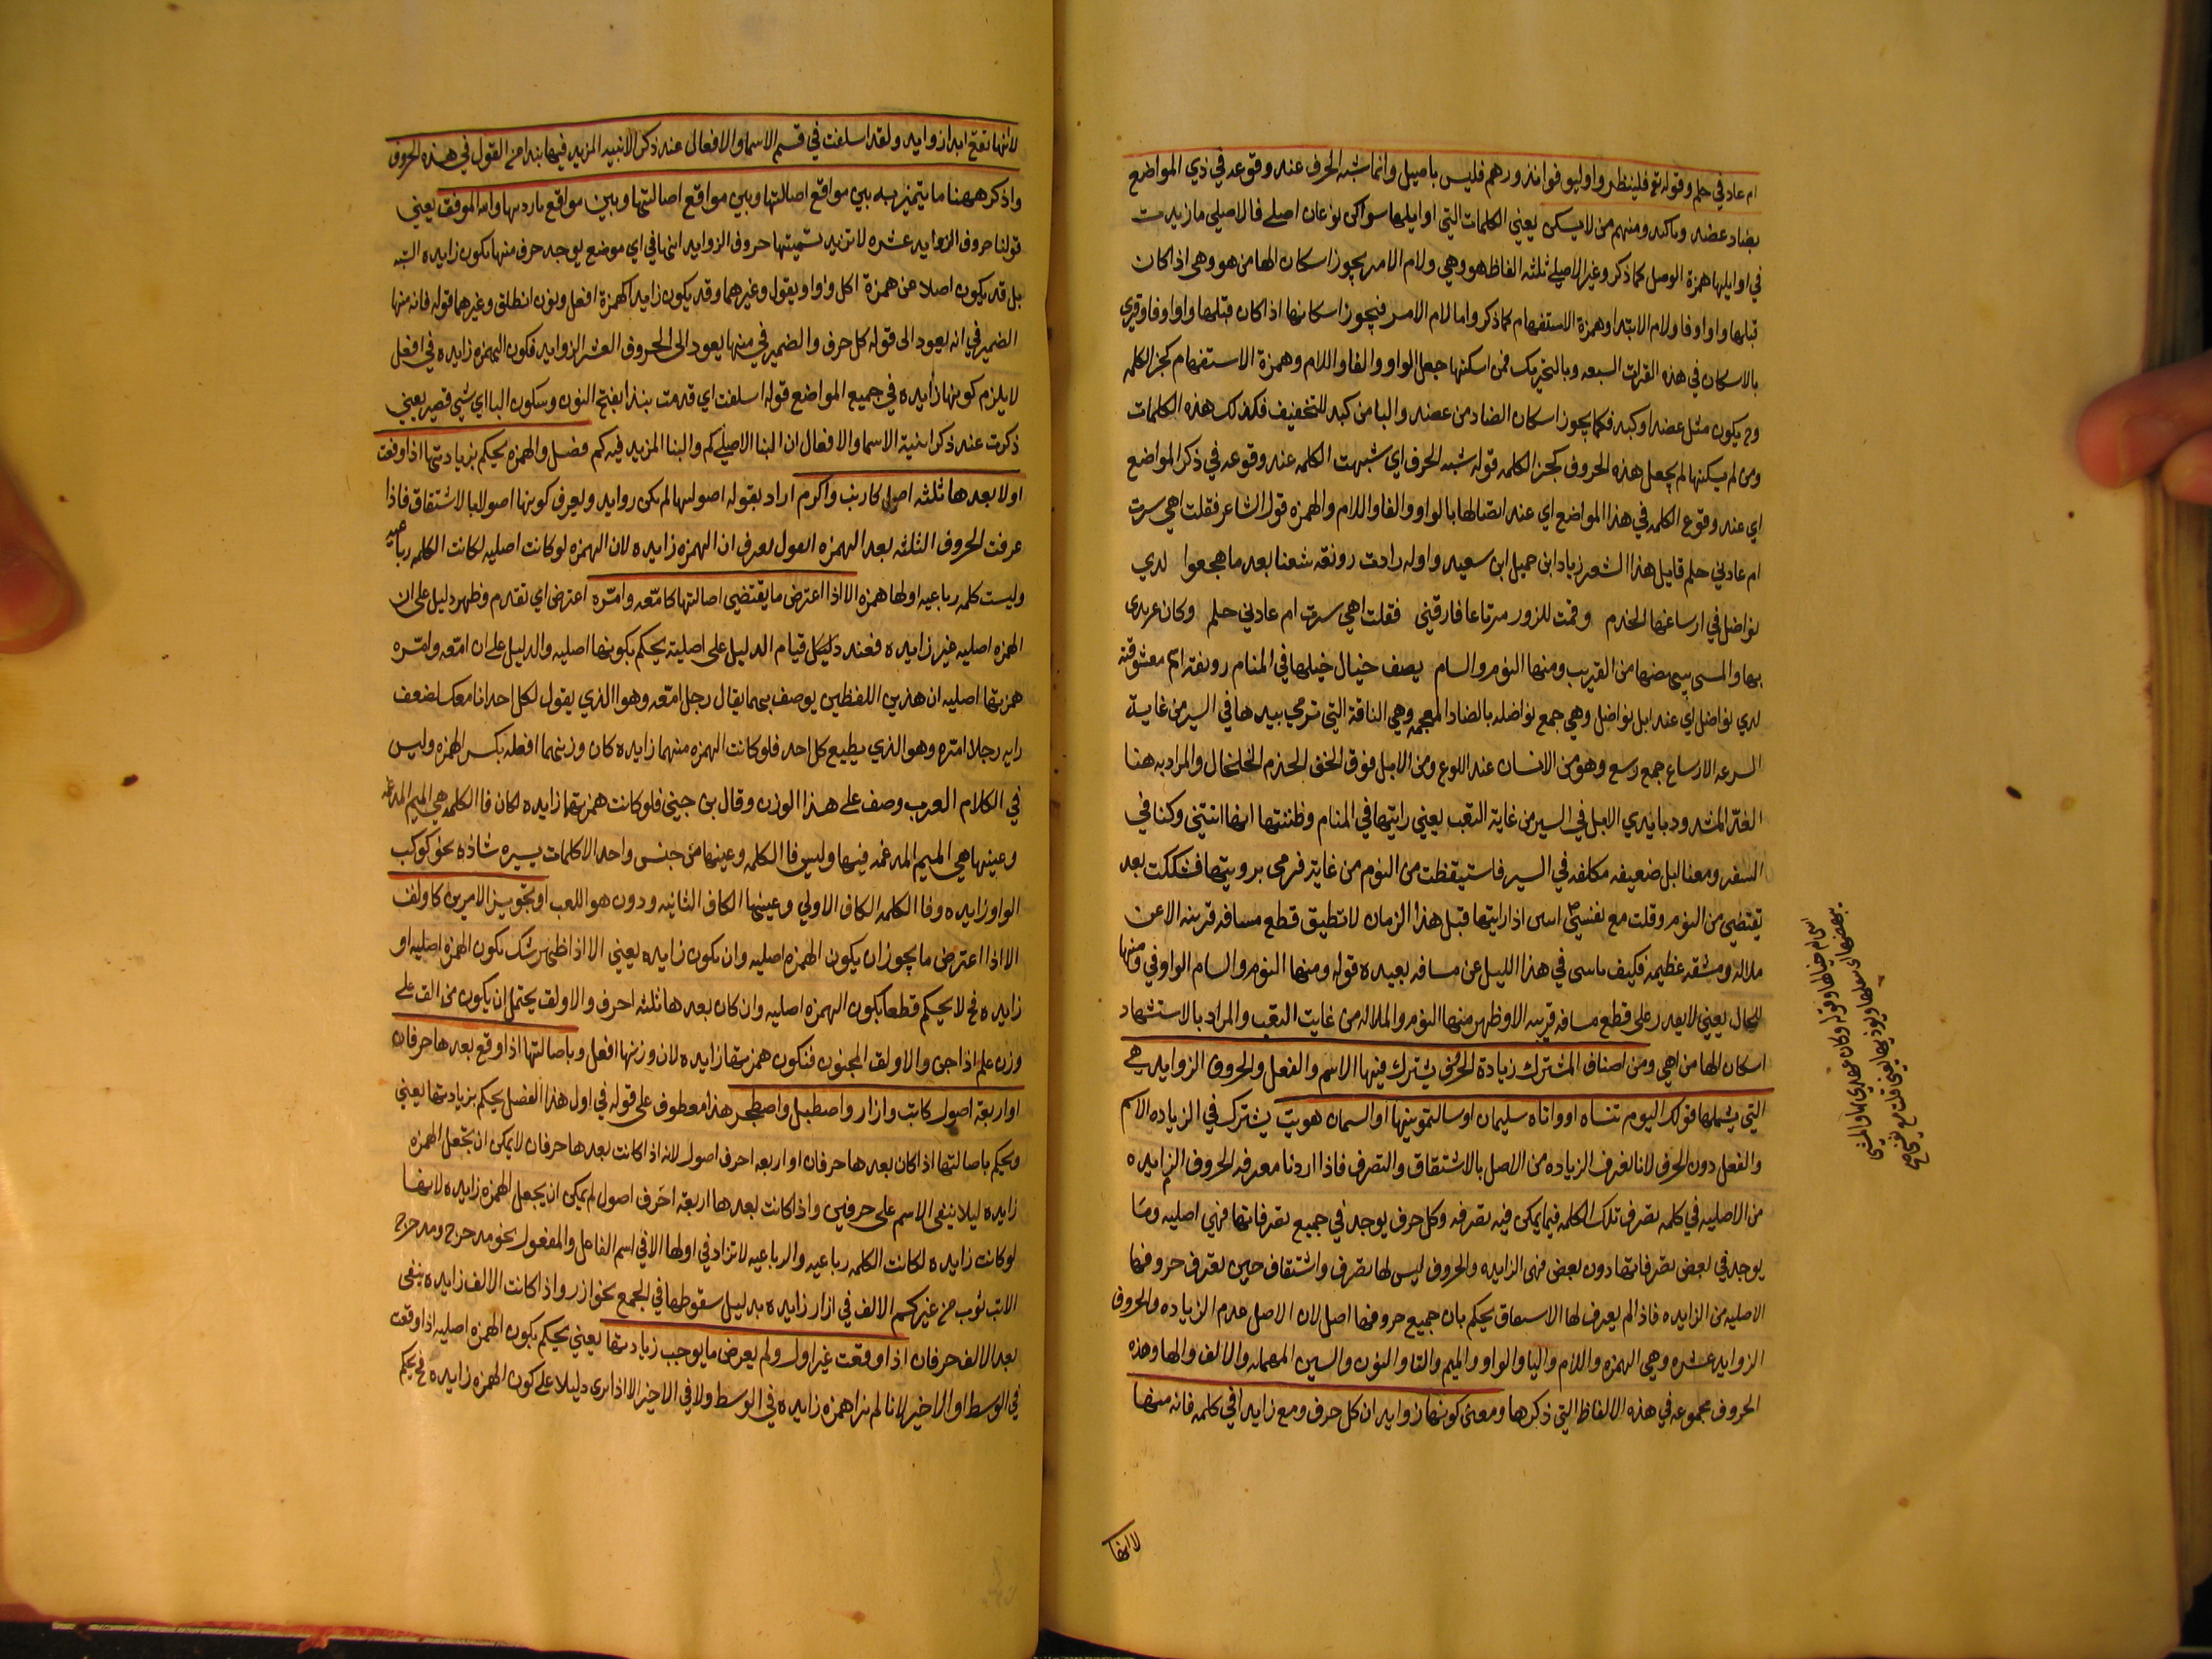 ام عاد في حلم وقوله تع فلينظر واوليوفوا نذورهم فليس باصيل وانما شبه الحرف عند وقوعه في ذي المواضع
بضاد عضد وباكبد ومنهم من لا يسكن يعني الكلمات التي اوايلها سواكن نوعان اصلي فالاصلي ما زيدت
في اوايلها همزة الوصل كما ذكر وغير الاصلي ثلثه الفاظ هو وهي ولام الامر يجوز اسكان الها من هو وهي اذا كان
قبلها واو او فا ولام الابتدا وهمزة الاستفهام كما ذكر واما لام الامر فيجوز اسكانها اذا كان قبلها واو او فا وقري
بالاسكان في هذه القرات السبعه وبالتحريك فمن اسكنها جعل الواو والفا واللام وهمزة الاستفهام كجز الكلمه
وح يكون مثل عضد او كبد فكما يجوز اسكان الضاد من عضد والبا من كبد للتخفيف فكذلك هذه الكلمات
ومن لم يسكنها لم يجعل هذه الحروف كجز الكلمه قوله شبه الحرف اي شبهت الكلمه عند وقوعه في ذكر المواضع
اي عند وقوع الكلمه في هذا المواضع اي عند اتصالها بالواو والفا واللام والهمزه قول الشاعر فقلت اهي سرت
ام عادني حلم قايل هذا الشعر زياد ابن حميل ابن سعيد واوله زارت رونقه شعثا بعد ما هجعوا لدي
نواضل في ارساغها الخدم وقمت للزور مرتاعا فارقني فقلت اهي سرت ام عادني حلم وكان عهدي
بها والمشي يبهضها من القريب ومنها النوم والسام يصف خيال خيلها في المنام رونقه اسم معشوقته
لدي نواضل اي عند ابل نواضل وهي جمع نواضله بالضاد المعجمه وهي الناقة التي ترمي بيدها في السير من غاية
السرعه الارساغ جمع رسغ وهو من الانسان عند اللوع ومن الابل فوق الخف الخدم الخلخال والمراد به هنا
القد المشدود بايدي الابل في السير من غاية التعب يعني رايتها في المنام وظننتها انها اتتني وكنا في
السفر ومعنا ابل ضعيفه مكلفه في السير فاستيقظت من النوم من غاية فرحي برويتها فشككت بعد
تيقظي من النوم وقلت مع نفسي اذا رايتها قبل هذا الزمان لا تطيق قطع مسافه قريبه الا عن
ملاله ومشقه عظيمه فكيف في هذا الليل عن مسافه بعيده قوله ومنها النوم والسام الواو في ومنها
للحال يعني لا يقدر على قطع مسافه قريبه الا وظهر منها النوم والملاله من غايت التعب والمراد بالاستشهاد
اسكان الها من اهي ومن اصناف المشترك زيادة الحرف يشترك فيها الاسم والفعل والحروف الزوايد هي
التي يشملها قولك اليوم تنساه او واتاه سليمان او سالتمونيها او السمان هويت يشترك في الزياده الاسم
والفعل دون الحرف لانا نعرف الزياده من الاصل بالاشتقاق والتصرف فاذا اردنا معرفه الحروف الزايده
من الاصليه في كلمه نصرف تلك الكلمه فيما يمكن فيه تصرفه وكل حرف يوجد في جميع تصرفاتها فهي اصليه وما
يوجد في بعض تصرفاتها دون بعض فهي الزايده والحروف ليس لها تصرف واشتقاق حين نعرف حروفها
الاصليه من الزايده فاذا لم يعرف لها الاشتقاق يحكم بان جميع حروفها اصل لان الاصل عدم الزياده والحروف
الزوايد عشره وهي الهمزه واللام واليا والواو والميم والتا والنون والسين المهمله والالف والها وهذه
الحروف مجموعه في هذه الالفاظ التي ذكرها ومعنى كونها زوايد ان كل حرف وقع زايدا في كلمه فانه منها
لانها
اسام خيالها وقوله وكان عهدي بها والمشي
يبهضها اي يثقلها ويوذيها يعني قلت مع نفسي
لانها تقع ابدا زوايد ولقد اسلفت في قسم الاسما والافعال عند ذكر الابنيه المزيد فيها نبذا من القول في هذه الحروف
واذكر ههنا ما يتميز به بين مواقع اصالتها وبين مواقع اصالتها وبين مواقع زيادتها والله الموفق يعني
قولنا حروف الزوايد عشره لا نريد تسميتها حروف الزوايد انها في اي موضع يوجد حرف منها يكون زايده البته
بل قد يكون اصلا عن همزة اكل وواو ويقول وغيرهما وقد يكون زايدا كهمزة افعل ونون انطلق وغيرهما قوله فانه منها
الضمير في انه يعود الى قوله كل حرف والضمير في منها يعود الى الحروف العشر الزوايد فكون الهمزه زايده في افعل
لا يلزم كونها زايده في جميع المواضع قوله اسلفت اي قدمت نبذا بفتح النون وسكون البا اي شي قصير يعني
ذكرت عند ذكر ابنية الاسما والافعال ان البنا الاصلي كم والبنا المزيد فيه كم فصل والهمزه يحكم بزيادتها اذا وقعت
اولا بعدها ثلثه اصول كارنب واكرم اراد بقوله اصول انها لم يكن زوايد ويعرف كونها اصولا بالاشتقاق فاذا
عرفت الحروف الثلثه بعد الهمزه اصول يعرف ان الهمزه زايده لان الهمزه لو كانت اصليه لكانت الكلمه رباعيه
وليست كلمه رباعيه اولها همزه الا اذا اعترض ما يقتضي اصالتها كامعه وامره اعترض اي تقدم وظهر دليل على ان
الهمزه اصليه غير زايده فعند ذلك قيام الدليل على اصليته يحكم بكونها اصليه والدليل على ان امعه وامره
همزتها اصليه ان هذين اللفظين يوصف بهما يقال رجل امعه وهو الذي يقول لكل احد انا معك لضعف
رايه رجل امره وهو الذي يطيع كل احد فلو كانت الهمزه منهما زايده كان وزنهما افعله بكسر الهمزه وليس
في الكلام العرب وصف على هذا الوزن وقال بن جني فلو كانت همزتها زايده لكان فا الكلمه هي الميم المدغمه
وعينها هي الميم المدغمه فيها وليس فا الكلمه وعينها من جنس واحد الا كلمات يسيره شاذه نحو كوكب
الواو زايده وفا الكلمه الكاف الاولى وعينها الكاف الثانيه وددن هو اللعب او تجويز الامرين كاولق
الا اذا اعترض ما يجوز ان يكون الهمزه اصليه وان يكون زايده يعني الا اذا ظهر شك بكون الهمزه اصليه او
زايده فح لا يحكم قطعا بكون الهمزه اصليه وان كان بعدها ثلثه احرف والاولق يحتمل ان يكون من الق على
وزن علم اذا جن والاولق المجنون فتكون همزتها زايده لان وزنها افعل وباصالتها اذا وقع بعدها حرفان
او اربعة اصول كاتب وازار واصطبل واصطخر هذا معطوف على قوله في اول هذا الفصل يحكم بزيادتها يعني
ويحكم باصالتها اذا كان بعدها حرفان او اربعه احرف اصول لانه اذا كانت بعدها حرفان لا يمكن ان تجعل الهمزه
زايده ليلا يبقى الاسم على حرفين واذا كانت بعدها اربعة احرف اصول لم يمكن ان يجعل الهمزه زايده لانها
لو كانت زايده لكانت الكلمه رباعيه والرباعيه لا تزاد في اولها الا في اسم الفاعل والمفعول نحو مدحرج ومدحرج
الاتب ثوب من غير كم الالف في ازار زايده بدليل سقوطها في الجمع نحو ازر واذا كانت الالف زايده بقى
بعد الالف حرفان اذا وقعت غير اول ولم يعرض ما يوجب زيادتها يعني يحكم بكون الهمزه اصليه اذا وقعت
في الوسط او الاخير لانا لم نرا همزه زايده في الوسط ولا في الاخير الا اذا نرى دليلا على كون الهمزه زايده فح يحكم